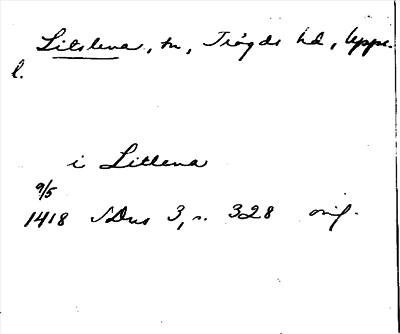 Litslena, sn, Trögds hd, Upps.
l.
i Litlena
9/5
1418 SDns 3, s. 328 orig.